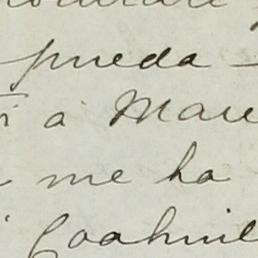 pueda
á Mare
me ha
Coahuil